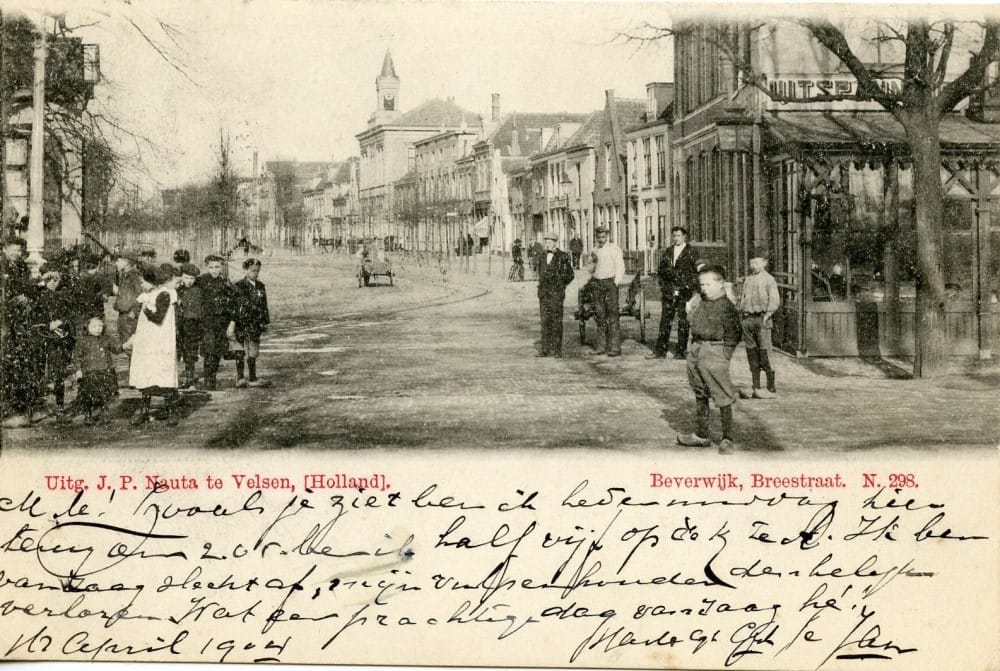 UITSPAN
Uitg. J. P. Nauta te Velsen, [Holland].
Beverwijk, Breestraat. N. 298.
M. L.! Zooals je ziet ben ik hedenmiddag hier
terug om 2.05 ben ik half vijf op de K te A. Ik ben
vandaag slecht af, mijn vulpenhouder
verloren Wat een prachtige dag vandaag hè!
April 1904 Jan